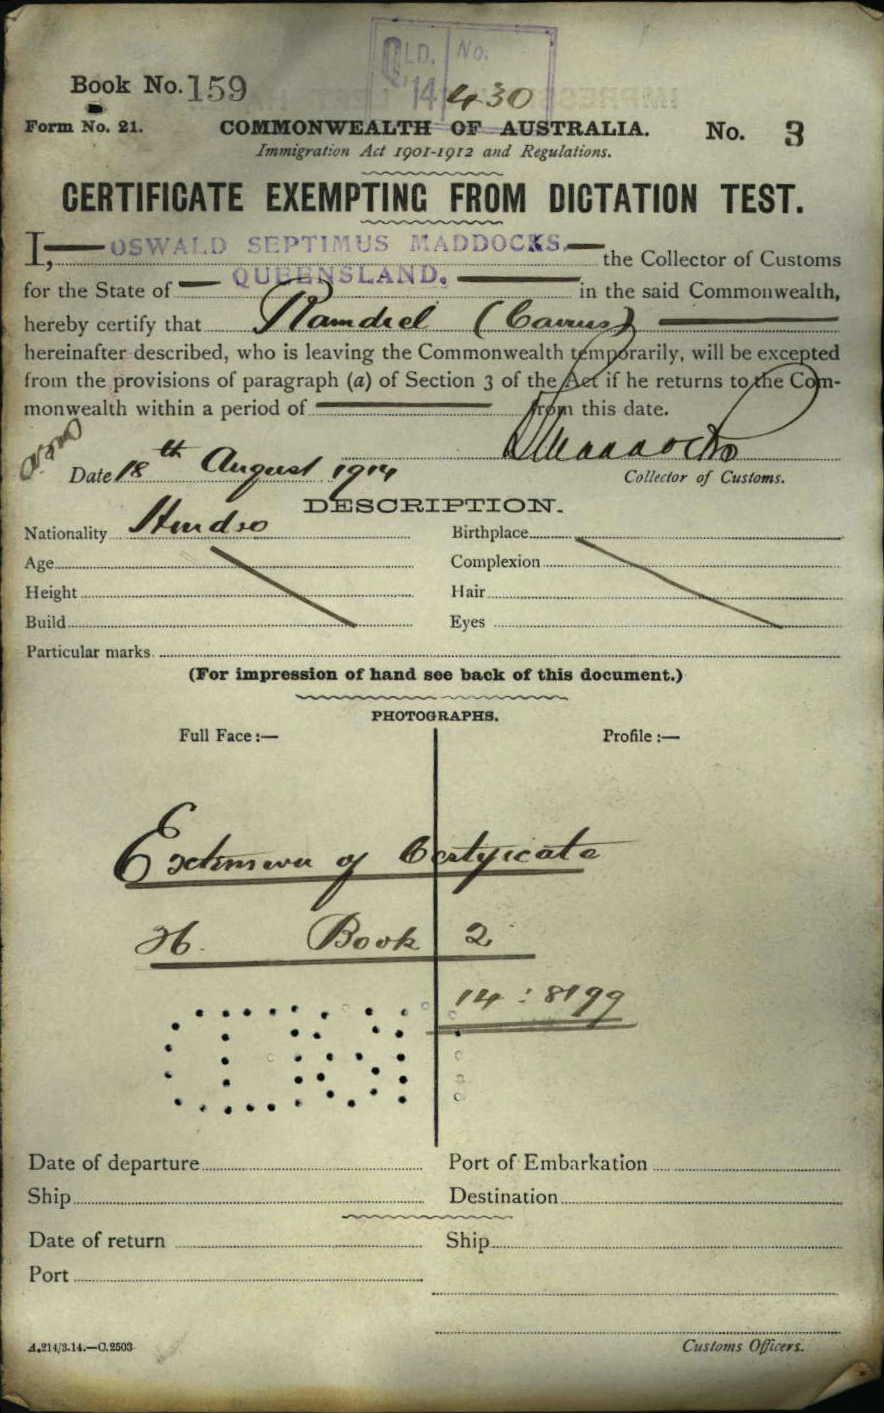 QLD. No.
'14 430
Book No. 159
Form No. 21. COMMONWEALTH OF AUSTRALIA. No. 3
Immigration Act 1901-1912 and Regulations.
CERTIFICATE EXEMPTING FROM DICTATION TEST.
I, OSWALD SEPTIMUS MADDOCKS, the Collector of Customs
for the State of QUEENSLAND, in the said Commonwealth,
hereby certify that Ramdiel (Cairns)
hereinafter described, who is leaving the Commonwealth temporarily, will be excepted
from the provisions of paragraph (a) of Section 3 of the Act if he returns to the Com-
monwealth within a period of from this date.
Maddocks
Date 18th August 1914 Collector of Customs.
DESCRIPTION.
Nationality Hindso Birthplace
Age Complexion
Height Hair
Build Eyes
Particular marks
(For impression of hand see back of this document.)
PHOTOGRAPHS.
Full Face :— Profile :—
Extension of Certificate
H. Book 2
14 : 8199
Date of departure Port of Embarkation
Ship Destination
Date of return Ship
Port
A.214/3.14.—C.2503 Customs Officers.